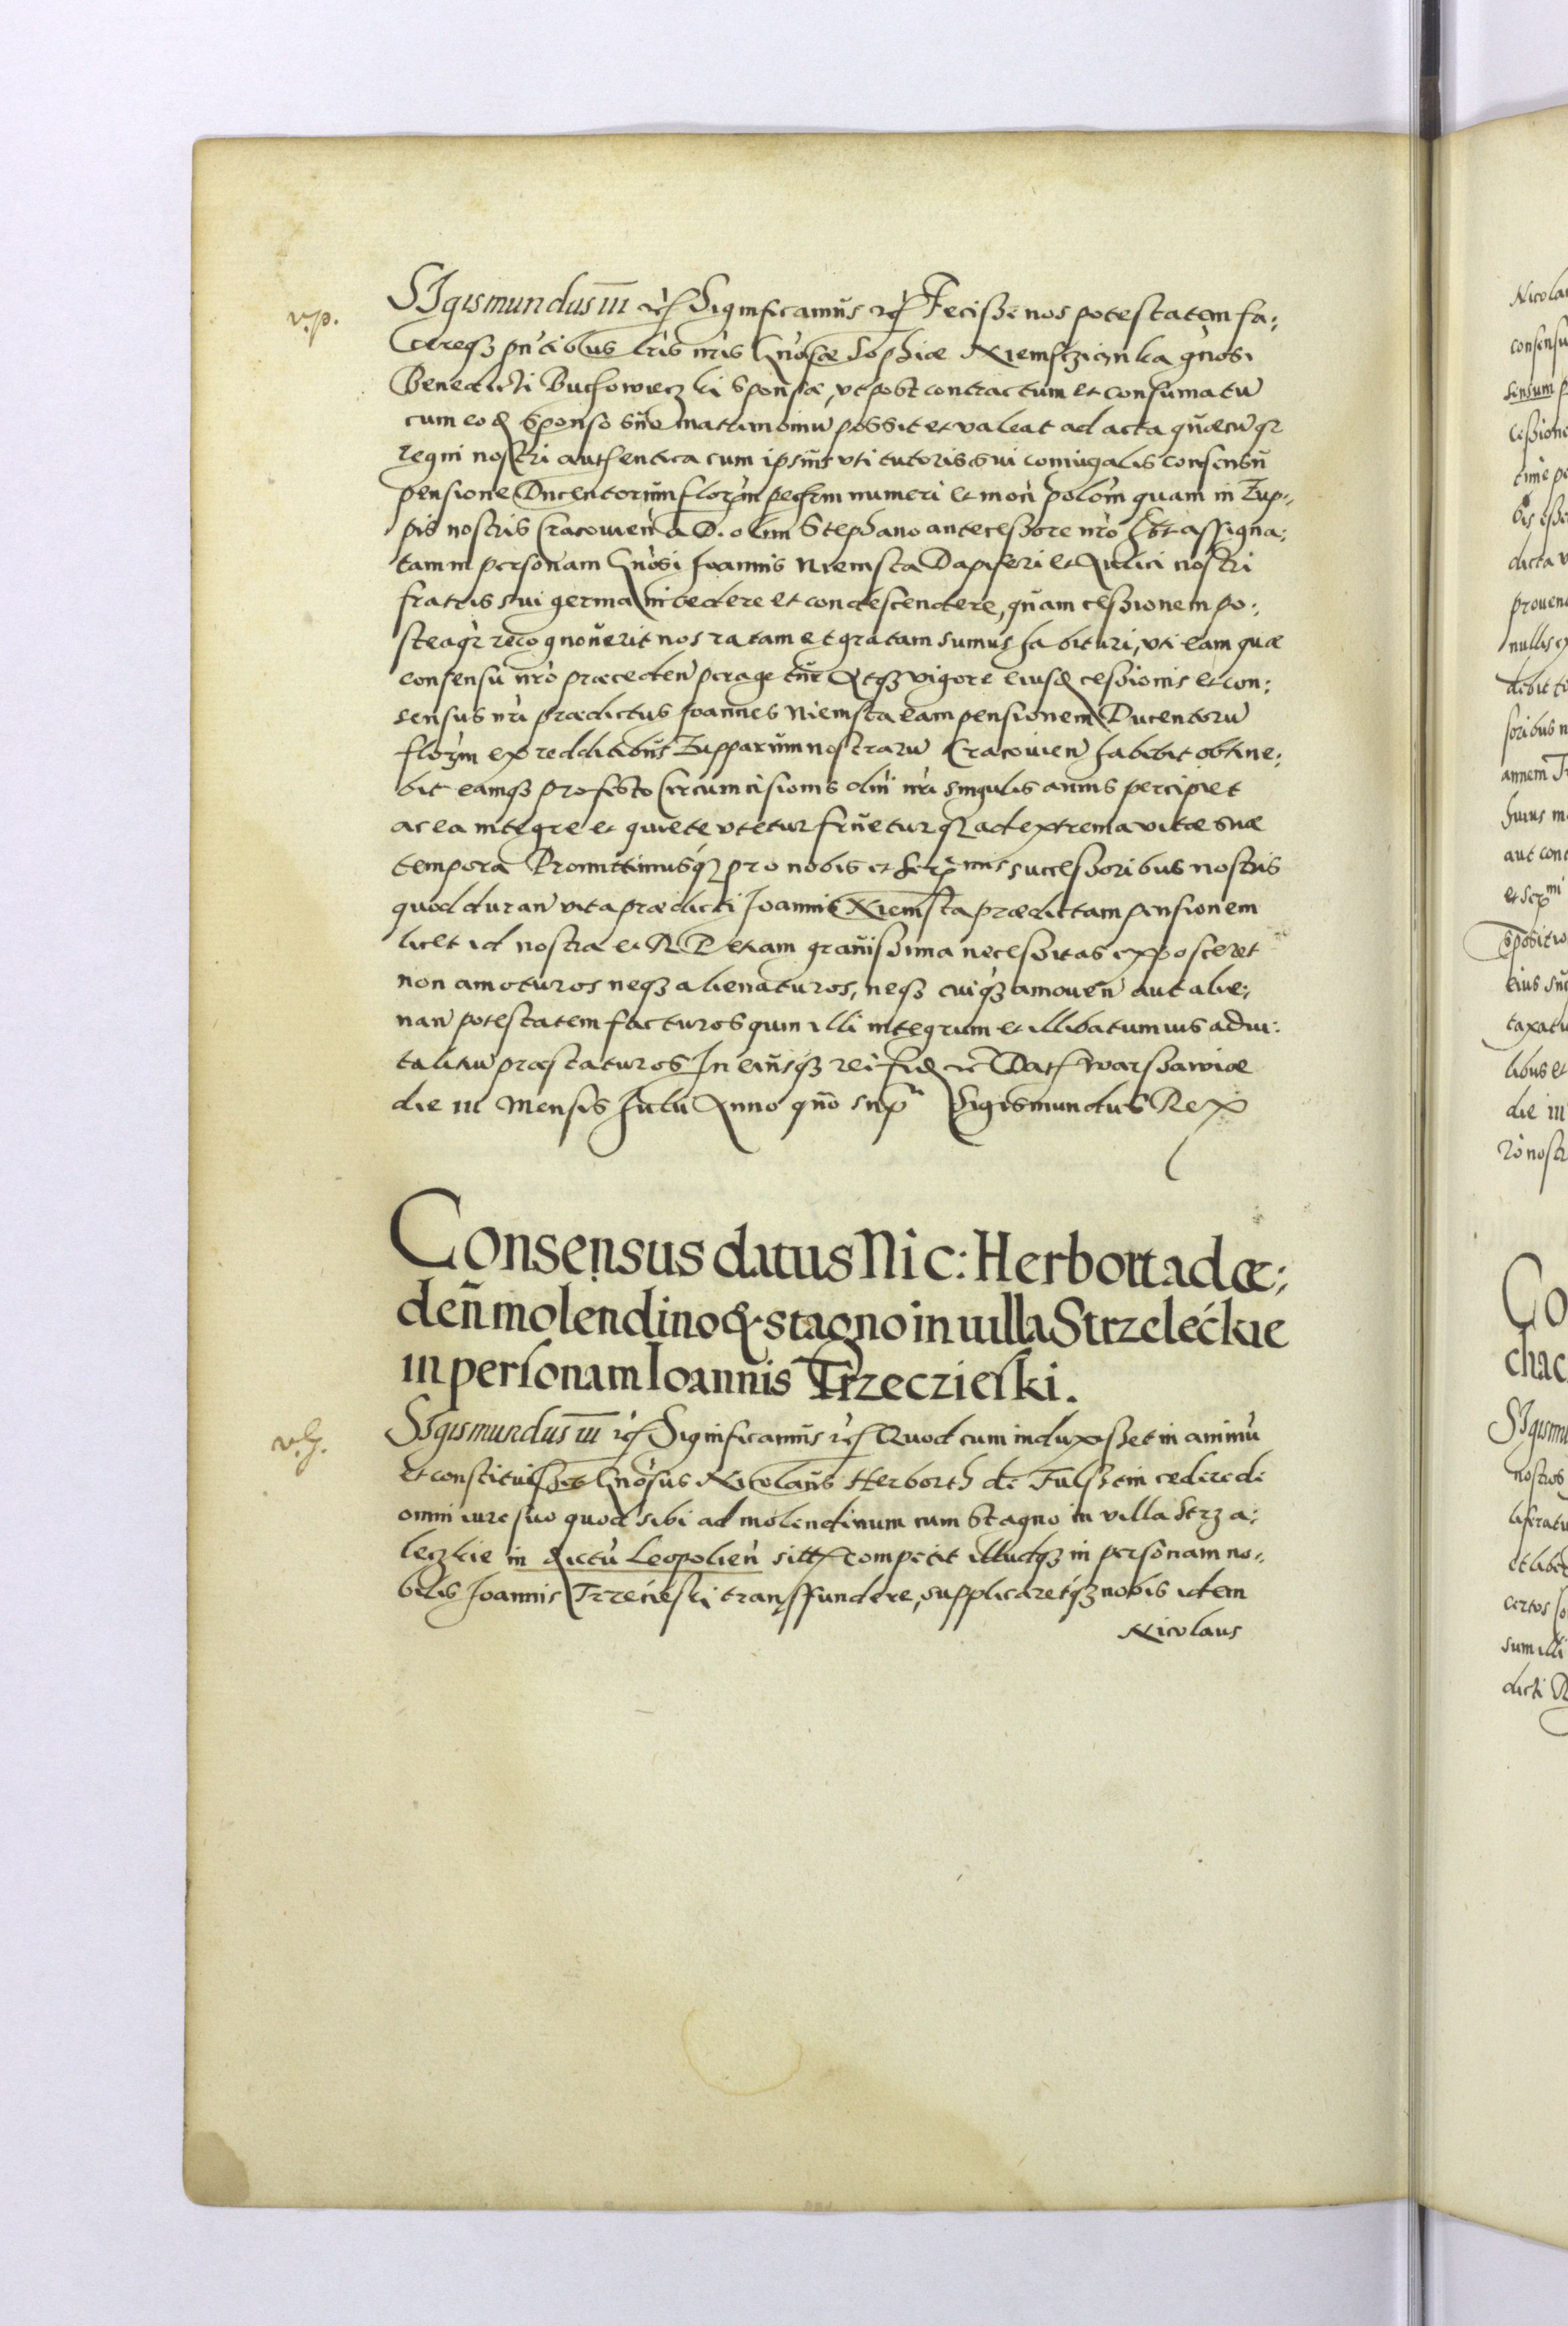 v.p.
SIgismundus iii etc Significamus etc Fecisse nos potestatem fa:
cereq3 pn̄tibus lr̄is nr̄is Gn̄osæ Sophiæ Niemsczianka gn̄osi
Benedicti Buchowieczki sponsæ, vt post contractum et consumatū
cum eod sponso suo matrimoniū possit et valeat ad acta quæcūqz
regni nostri authentica cum ipsius vti tutoris sui coniugalis consensu
pensione Ducentorum florm pechm numeri et mon̄ polōn quam in Zup:
pis nostris Cracouien̄ a D. olim Stephano antecessore nr̄o h̄bt assigna:
tam in personam Gn̄osi Joannis Niemsta Dapiferi et Aulici nostri
fratris sui germani cedere et condescendere, quam cessionem po:
steaq̄z recognouerit nos ratam et gratam sumus habituri, vti eam quæ
consensū nr̄o præceden̄ peragetur Atq3 vigore eiusd cessionis et con:
sensus nr̄i prædictus Joannes Niemsta eam pensionem Ducentorū
florm ex redditibus Zupparum nostrarū Cracouien̄ habebit obtine:
bit eamq3 pro festo Circumcisionis dn̄i nr̄i singulis annis percipiet
ac ea integre et quiete vtetur frueturqz ad extrema vitæ suæ
tempora Promittimusq3 pro nobis et Serᵐⁱˢ successoribus nostris
quod duran̄ vita prædicti Joannis Niemsta prædictam pensionem
licet id nostra et R P etiam grauissima necessitas exposceret
non amoturos neq3 alienaturos, neq3 cuiq3 amouen̄ aut alie:
nan̄ potestatem facturos quin illi integrum et illibatum ius aduī:
talitiū præstaturos In cuiusq3 rei fid etc Dat Warssawiæ
die iii Mensis Julii Anno quo supᵃ Sigismundus Rex
Consensus datus Nic: Herbortt ad cæ:
den̄ molendino & stagno in uilla Strzelećkie
in personam Ioannis Trzeczieski.
v.g.
SIgismundus iii etc Significamus etc Quod cum induxisset in animū
et constituisset Gn̄osus Nicolaus Herborth de Fulsztin cedere de
omni iure suo quod sibi ad molendinum cum Stagno in villa Strza:
leczkie in districtū Leopolien̄ sitt competit illudq3 in personam no:
bilis Joannis Trzecieski transffundere, supplicaretq3 nobis idem
Nicolaus